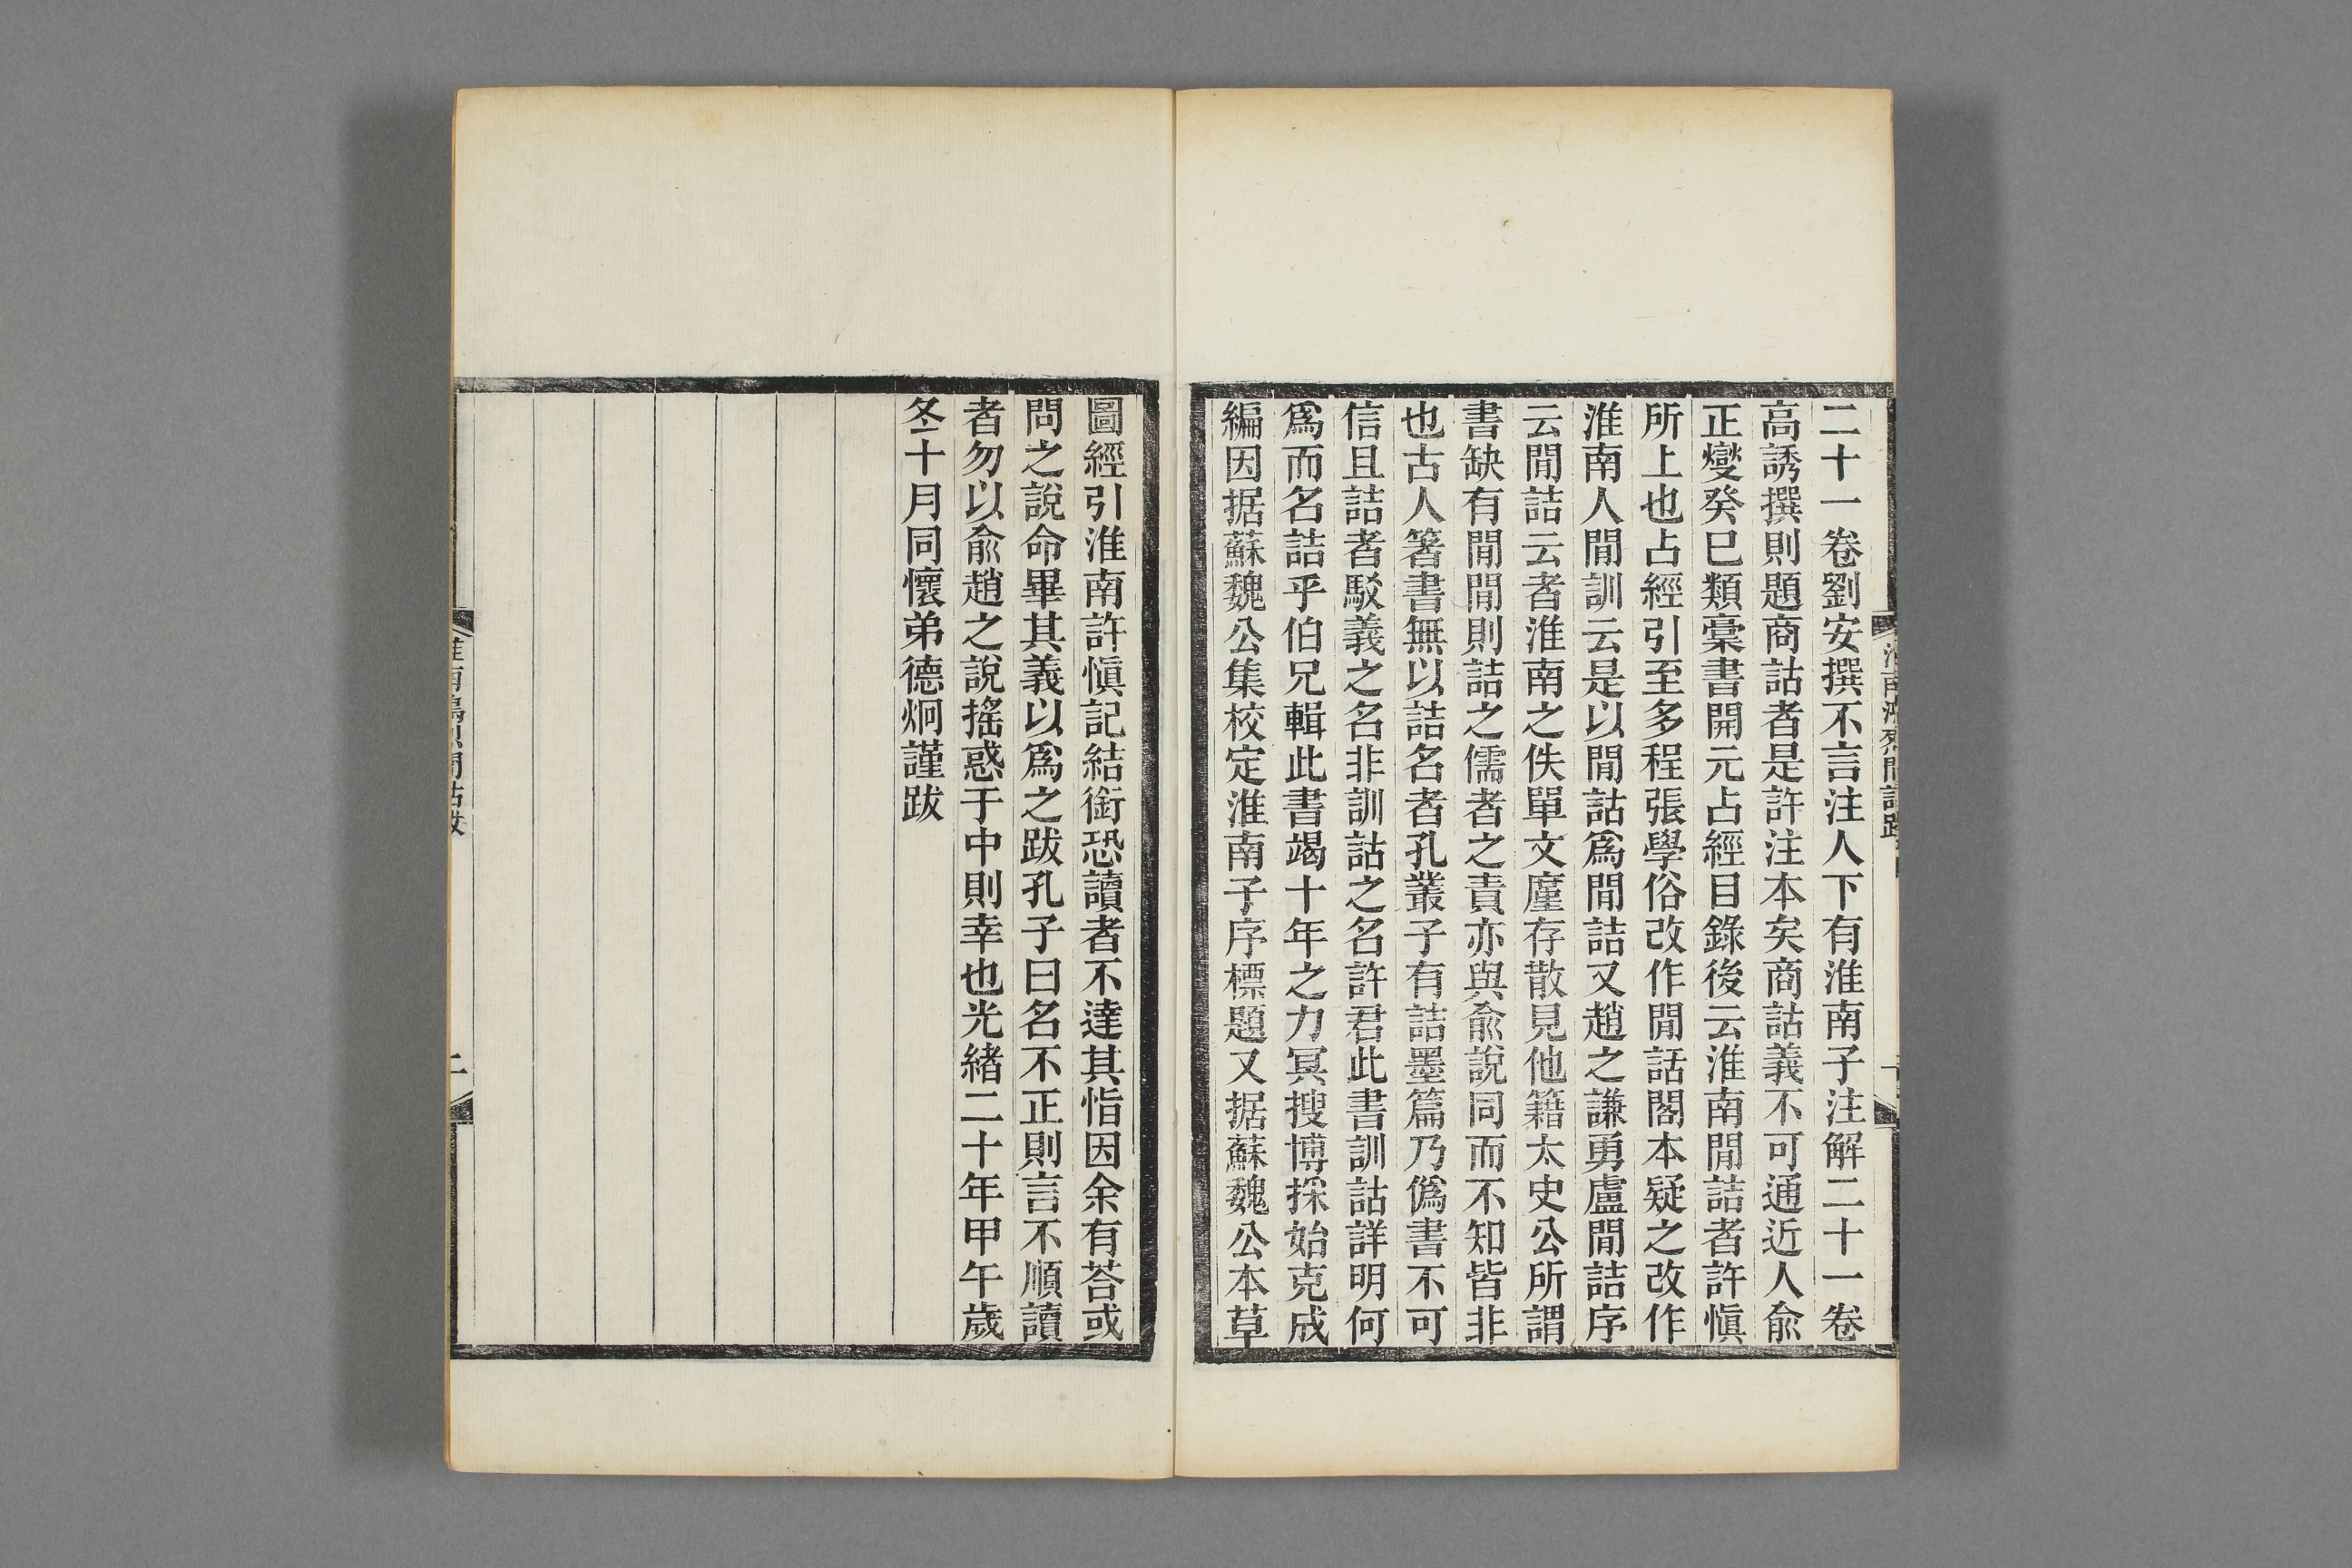 二十一卷劉安撰不言注人下有淮南子注解二十一卷
高誘撰則題商詁者是許注本矣商詁義不可通近人俞
正燮癸巳類稾書開元占經目錄後云淮南閒詰者許愼
所上也占經引至多程張學俗改作閒話閣本疑之改作
淮南人閒訓云是以閒詁爲閒詰又趙之謙勇盧閒詰序
云閒詰云者淮南之佚單文廑存散見他籍太史公所謂
書缺有閒閒則詰之儒者之責亦與俞說同而不知皆非
也古人箸書無以詰名者孔叢子有詰墨篇乃僞書不可
信且詰者駁義之名非訓詁之名許君此書訓詁詳明何
爲而名詰乎伯兄輯此書竭十年之力冥搜博採始克成
編因据蘇魏公集校定淮南子序標題又据蘇魏公本草
圖經引淮南許愼記結銜恐讀者不達其恉因余有荅或
問之說命畢其義以爲之跋孔子曰名不正則言不順讀
者勿以俞趙之說搖惑于中則幸也光緒二十年甲午歲
冬十月同懷弟德炯謹跋